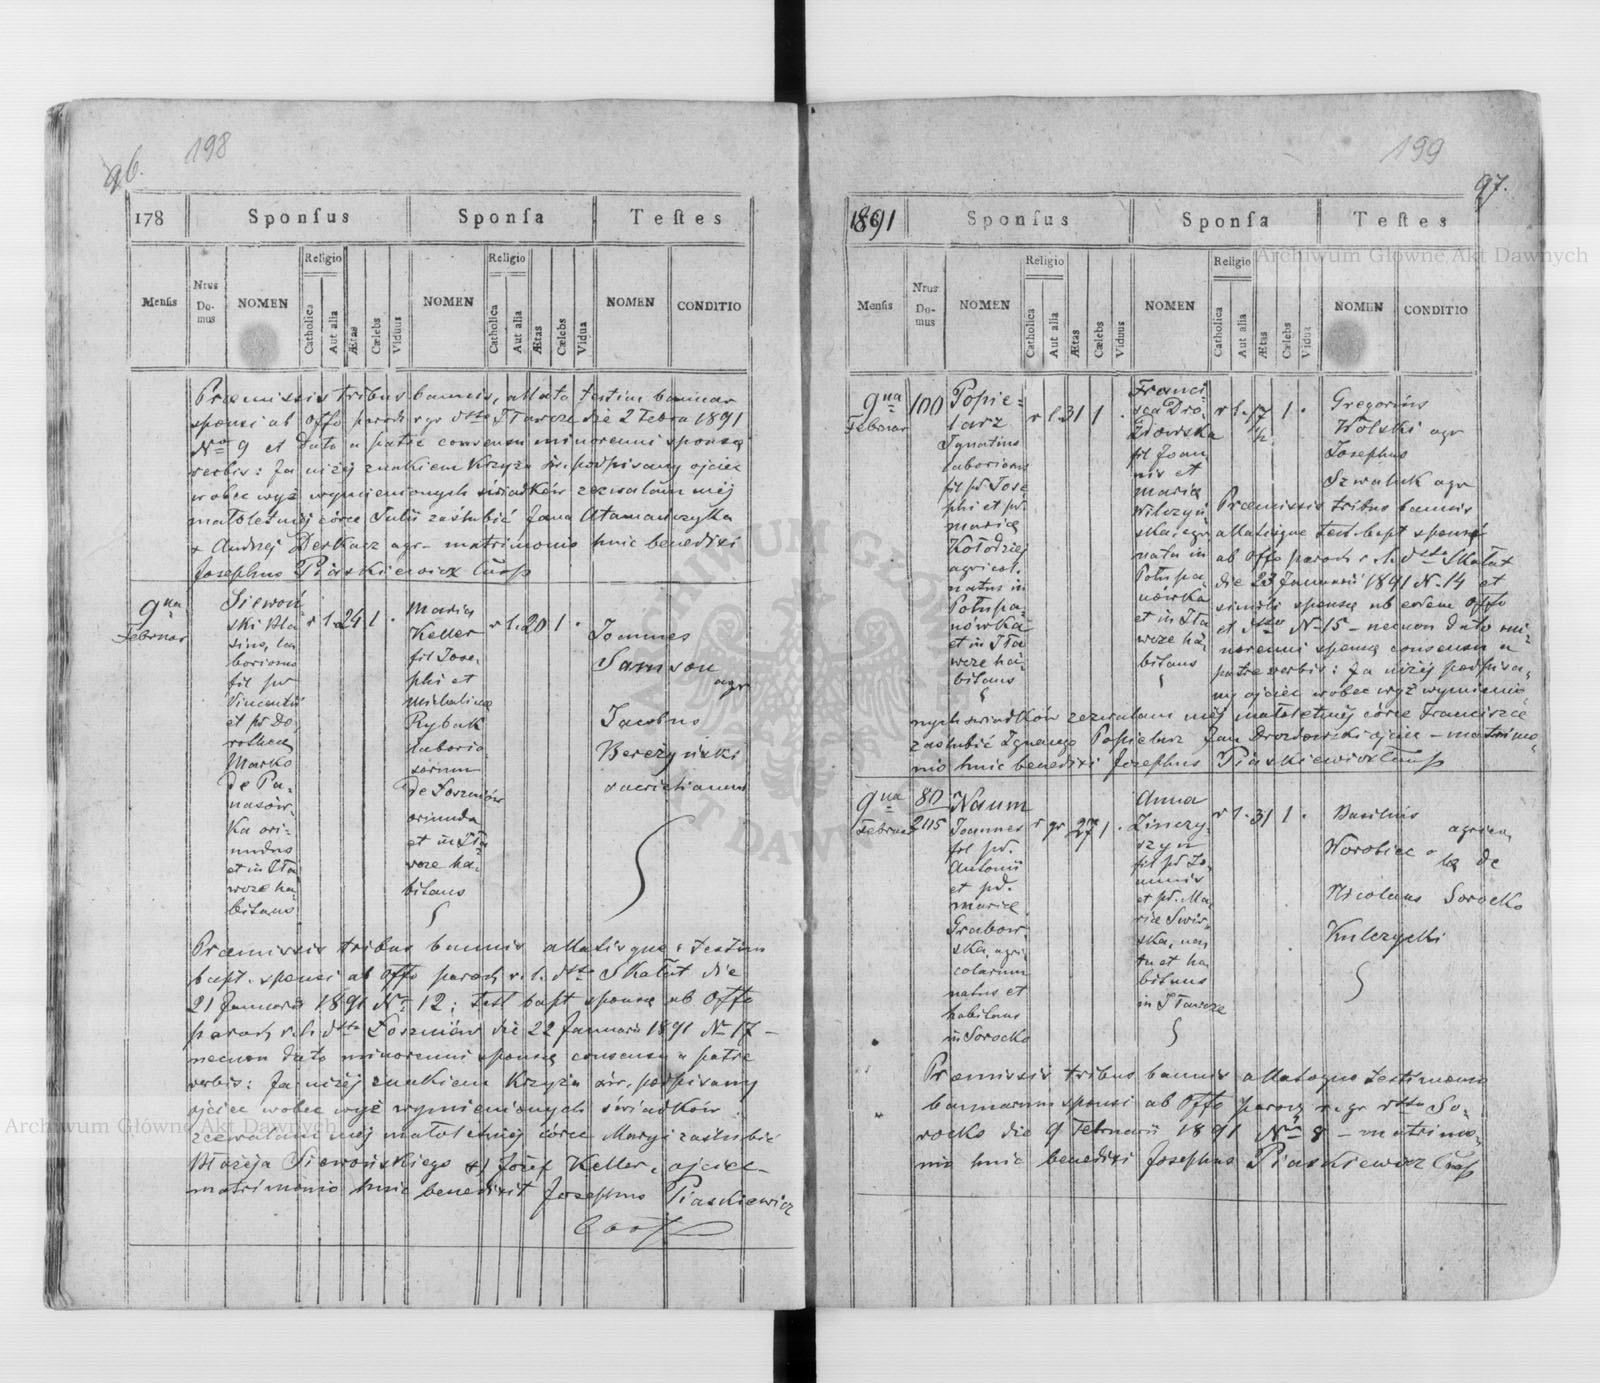 96.
198
178
Sponsus
Sponsa
Testes
Mensis
Nrus Domus
NOMEN
Religio
Catholica
Aut alia
Ætas
Cœlebs
Viduus
NOMEN
Religio
Catholica
Aut alia
Ætas
Cœlebs
Vidua
NOMEN
CONDITIO
Præmissis tribus bannis, allato testim bannor
sponsi ab Offo paroch r gr dtto Iławcze die 2 Febra 1891
No 9 et dato a patre consensu minorenni sponsæ
verbis: Ja niżej znakiem Krzyża św. podpisany ojciec
wobec wyż wymienionych świadków zezwalam mej
małoletniej córce Julii zaślubić Jana Atamańczyka
+ Andrzej Derkacz agr – matrimonio huic benedixi
Josephus Piaskiewicz
9na
Februar
Siewoń-
ski Bla-
sius, la-
boriosus
fil pr
Vincentii
et pr Do-
rothea
Marko
de Pa-
nasów-
ka ori-
undus
et in Iła-
wcze ha-
bitans
r l
24
1
Maria
Keller
fil Jose-
phi et
Michalinæ
Rybak
laborio-
sorum
de Łoszniów
oriunda
et in Iła-
wcze ha-
bitans
r l
20
1
Joannes
Samson
agr
Jacobus
Bereżyński
sacristianus
Præmissis tribus bannis allatisque: testim
bapt. sponsi ab Offo paroch r. l. dtto Skałat die
21 Januarii 1891 No 12; test bapt sponsæ ab Offo
paroch r. l. dtto Łoszniów die 22 Januarii 1891 No 17 –
necnon dato minorenni sponsæ consensu a patre
verbis: Ja niżej znakiem Krzyża św. podpisany
ojciec wobec wyż wymienionych świadków
zezwalam mej małoletniej córce Maryi zaślubić
Błażeja Siewońskiego + Józef Keller, ojciec –
matrimonio huic benedixit Josephus Piaskiewicz
199
97.
1891
Sponsus
Sponsa
Testes
Mensis
Nrus Domus
NOMEN
Religio
Catholica
Aut alia
Ætas
Cœlebs
Viduus
NOMEN
Religio
Catholica
Aut alia
Ætas
Cœlebs
Vidua
NOMEN
CONDITIO
9na
Februar
100
Popie-
larz
Ignatius
laboriosus
fil pr Jose-
phi et pr.
Mariæ
Kołodziej
agricol.
natus in
Połupa-
nówka
et in Iła-
wcze ha-
bitans
r l
31
1
Franci-
sca Dro-
zdowska
fil Joan-
nis et
Mariæ
Wilczyń-
ska, agr
nata in
Połupa-
nówka
et in Iła-
wcze ha-
bitans
r l.
17
½
1
Gregorius
Wolski agr
Josephus
Szwaluk agr
Præmissis tribus bannis
allatisque test. bapt sponsi
ab Offo paroch r. l. dtto Skałat
die 23 Januarii 1891 No. 14 et
simili sponsæ ab eodem Offo
et No 15 – necnon dato mi-
norenni sponsæ consensu a
patre verbis: Ja niżej podpisa-
ny ojciec wobec wyż wymienio-
nych świadków zezwalam mej małoletniej córce Franciszce
zaślubić Ignacego Popielarz Jan Drozdowski ojciec – matrimo-
nio huic benedixi Josephus Piaskiewicz
9na
Februar
80/2115
Naum
Joannes
fil pr.
Antonii
et pr.
Mariæ
Grabow-
ska, agri-
colarum
natus et
habitans
in Sorocko
r gr
27
1
Anna
Zinczy-
szyn
fil pr Jo-
annis
et pr. Ma-
riæ Swir-
ska, na-
ta et ha-
bitans
in Iławcze
r l.
31
1
Basilius
Worobiec
Nicolaus
Kulczycki
agricolæ
de
Sorocko
Præmissis tribus bannis allatoque testimonio
bannorum sponsi ab Offo paroch r. gr dtto So-
rocko die 9 Februarii 1891 No 8 – matrimo-
nio huic benedixi Josephus Piaskiewicz
Archiwum Główne Akt Dawnych
Archiwum Główne Akt Dawnych
ARCHIWUM GŁÓWNE AKT DAWNYCH